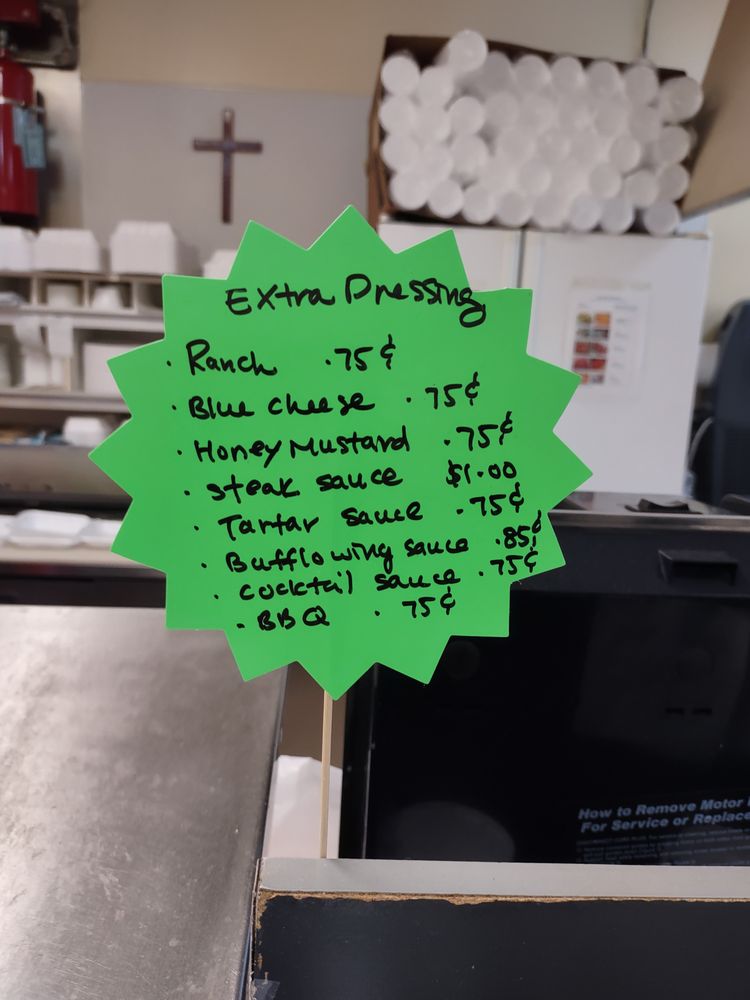 Extra Dressing
· Ranch .75¢
· Blue cheese .75¢
· Honey Mustard .75¢
· steak sauce $1.00
· Tartar sauce .75¢
· Bufflo wing sauce .85¢
· cocktail sauce .75¢
· BBQ .75¢
How to Remove Motor
For Service or Replace